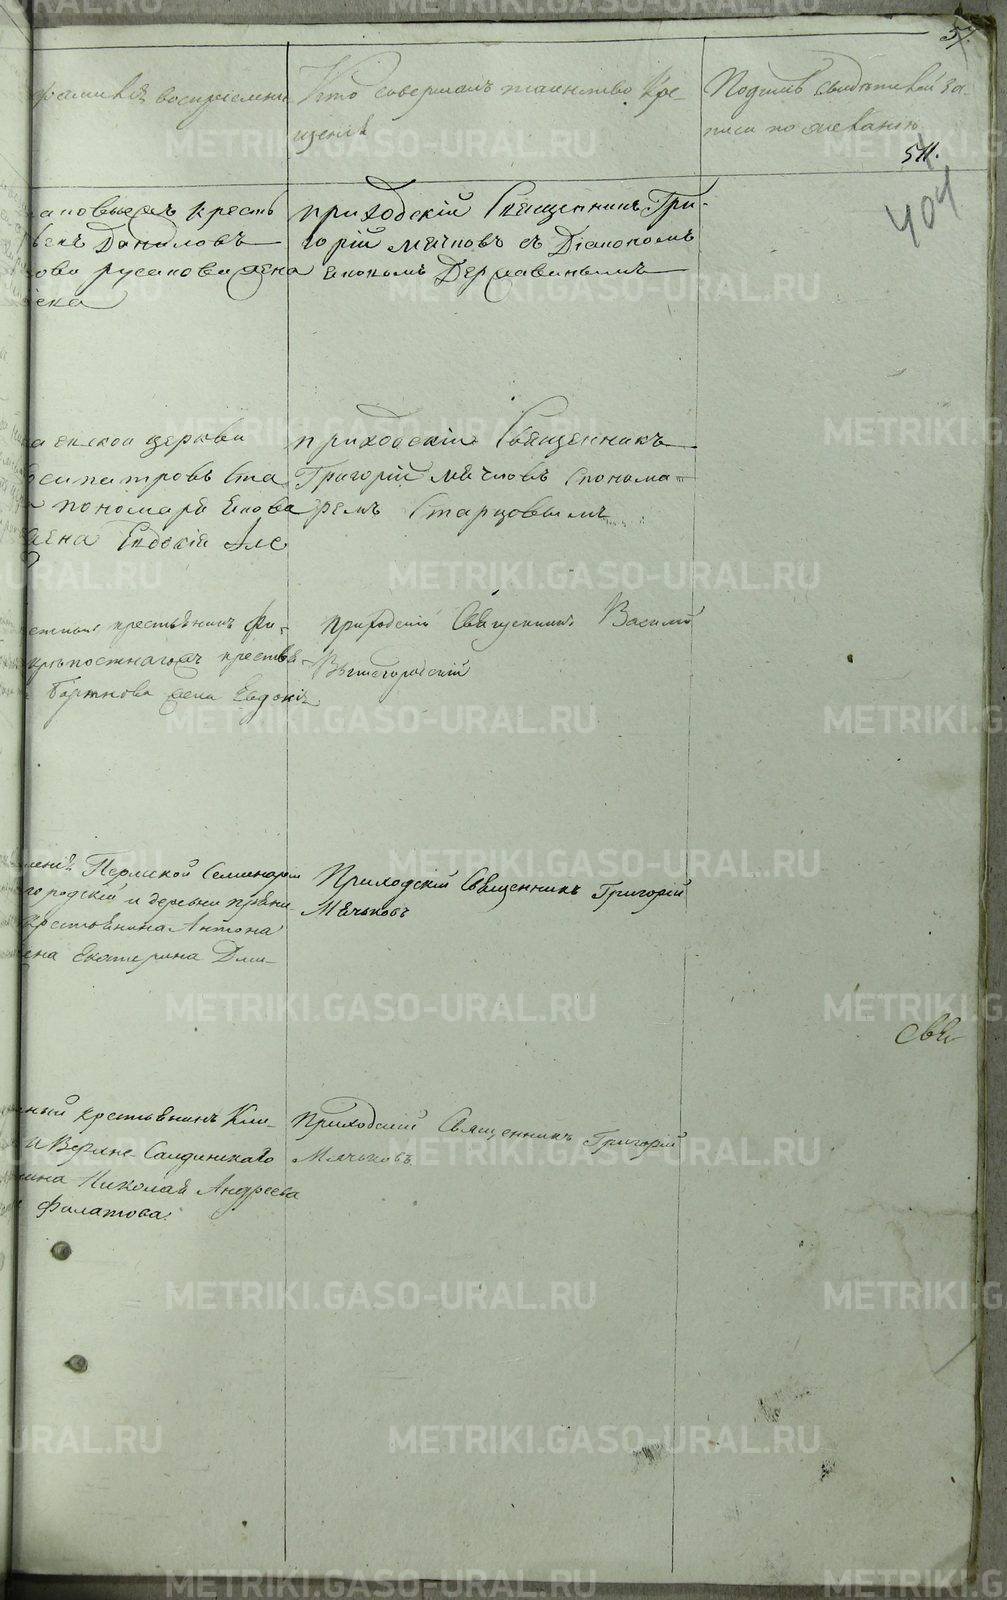 57.
фамилія воспріемни
Кто совершалъ таинство Кре-
щенія
Подпись свидѣтелей за-
писи по желанію
511.
404
ановыхъ кресть
Даниловъ
ова русакова жена
ска
приходскій Священникъ Гри-
горій Мячковъ съ Діакономъ
Іакономъ Державинымъ
енской церкви
петровъ Ста
пономаря Іакова
жена Евдокія Але
приходскій Священникъ
Григорій Мячковъ спонома-
ремъ Старцовымъ
крестьянинъ Фи-
крѣпостнаго крестья-
Бортнова жена Евдокія
приходскій Священникъ Василій
Вышегородскій
Пермской Семинаріи
городскій и деревни
крестьянина Антона
жена Екатерина Дми-
Приходскій Священникъ Григорій
Мячковъ
ный крестьянинъ Кли-
Верхне-Салдинскаго
нина Николай Андреева
Филатова
Приходскій Священникъ Григорій
Мячковъ
METRIKI.GASO-URAL.RU